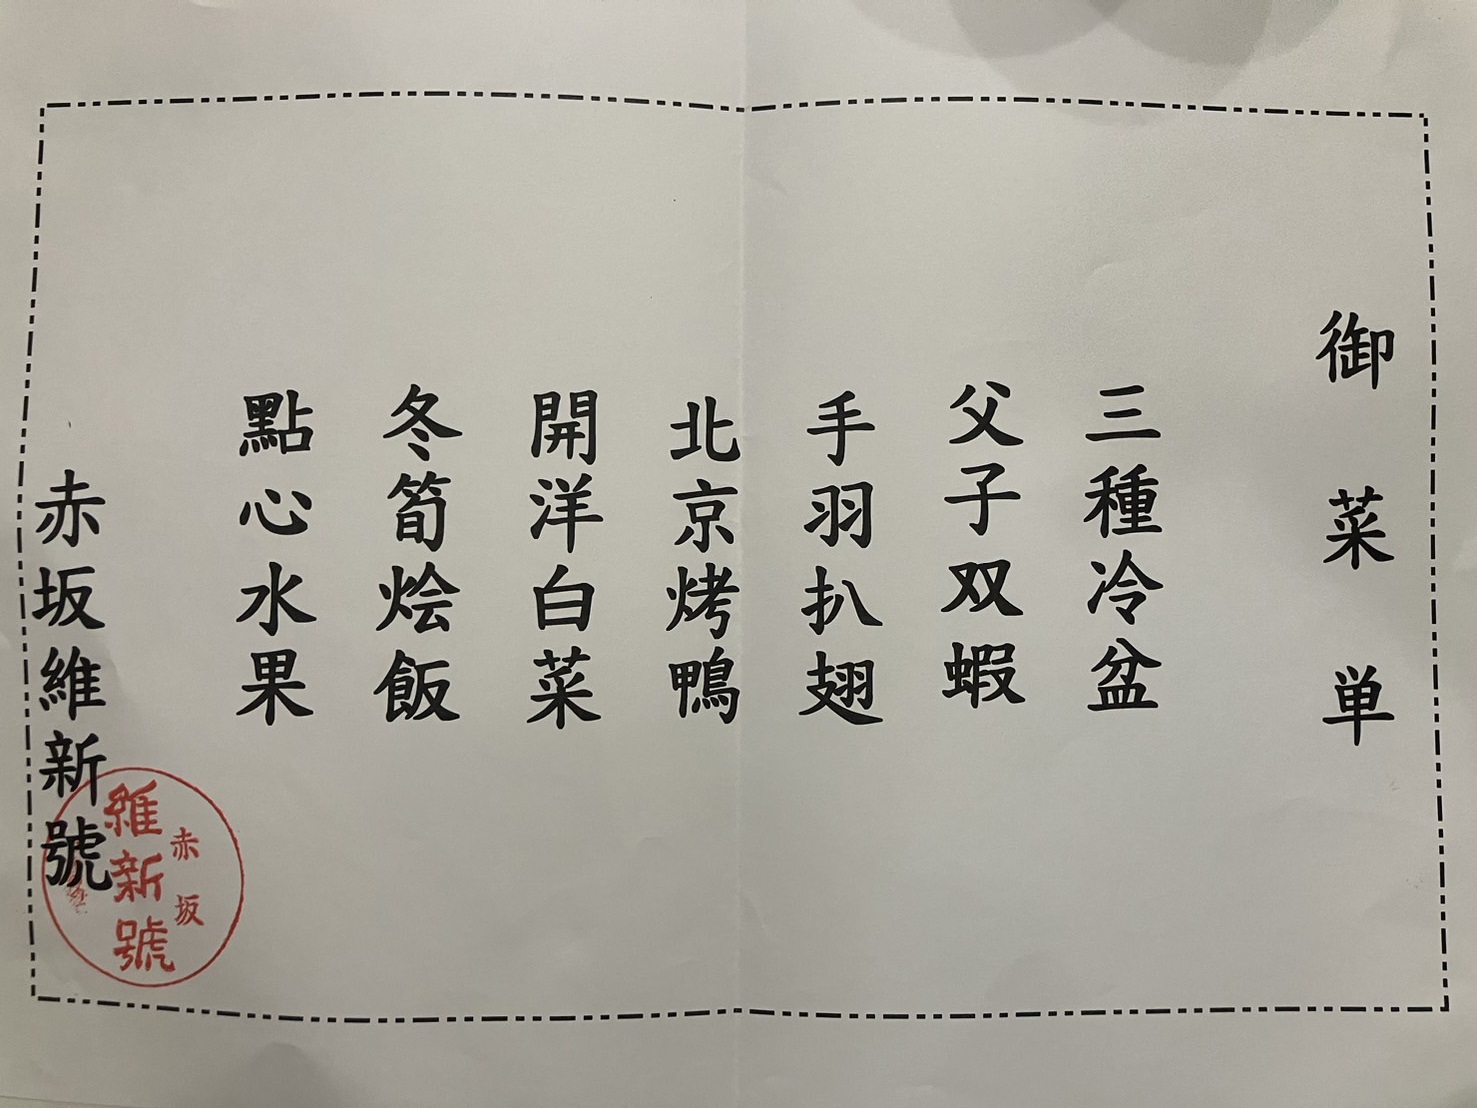 御菜単
三種冷盆
父子双蝦
手羽扒翅
北京烤鴨
開洋白菜
冬筍烩飯
點心水果
赤坂維新號
赤坂
維新號